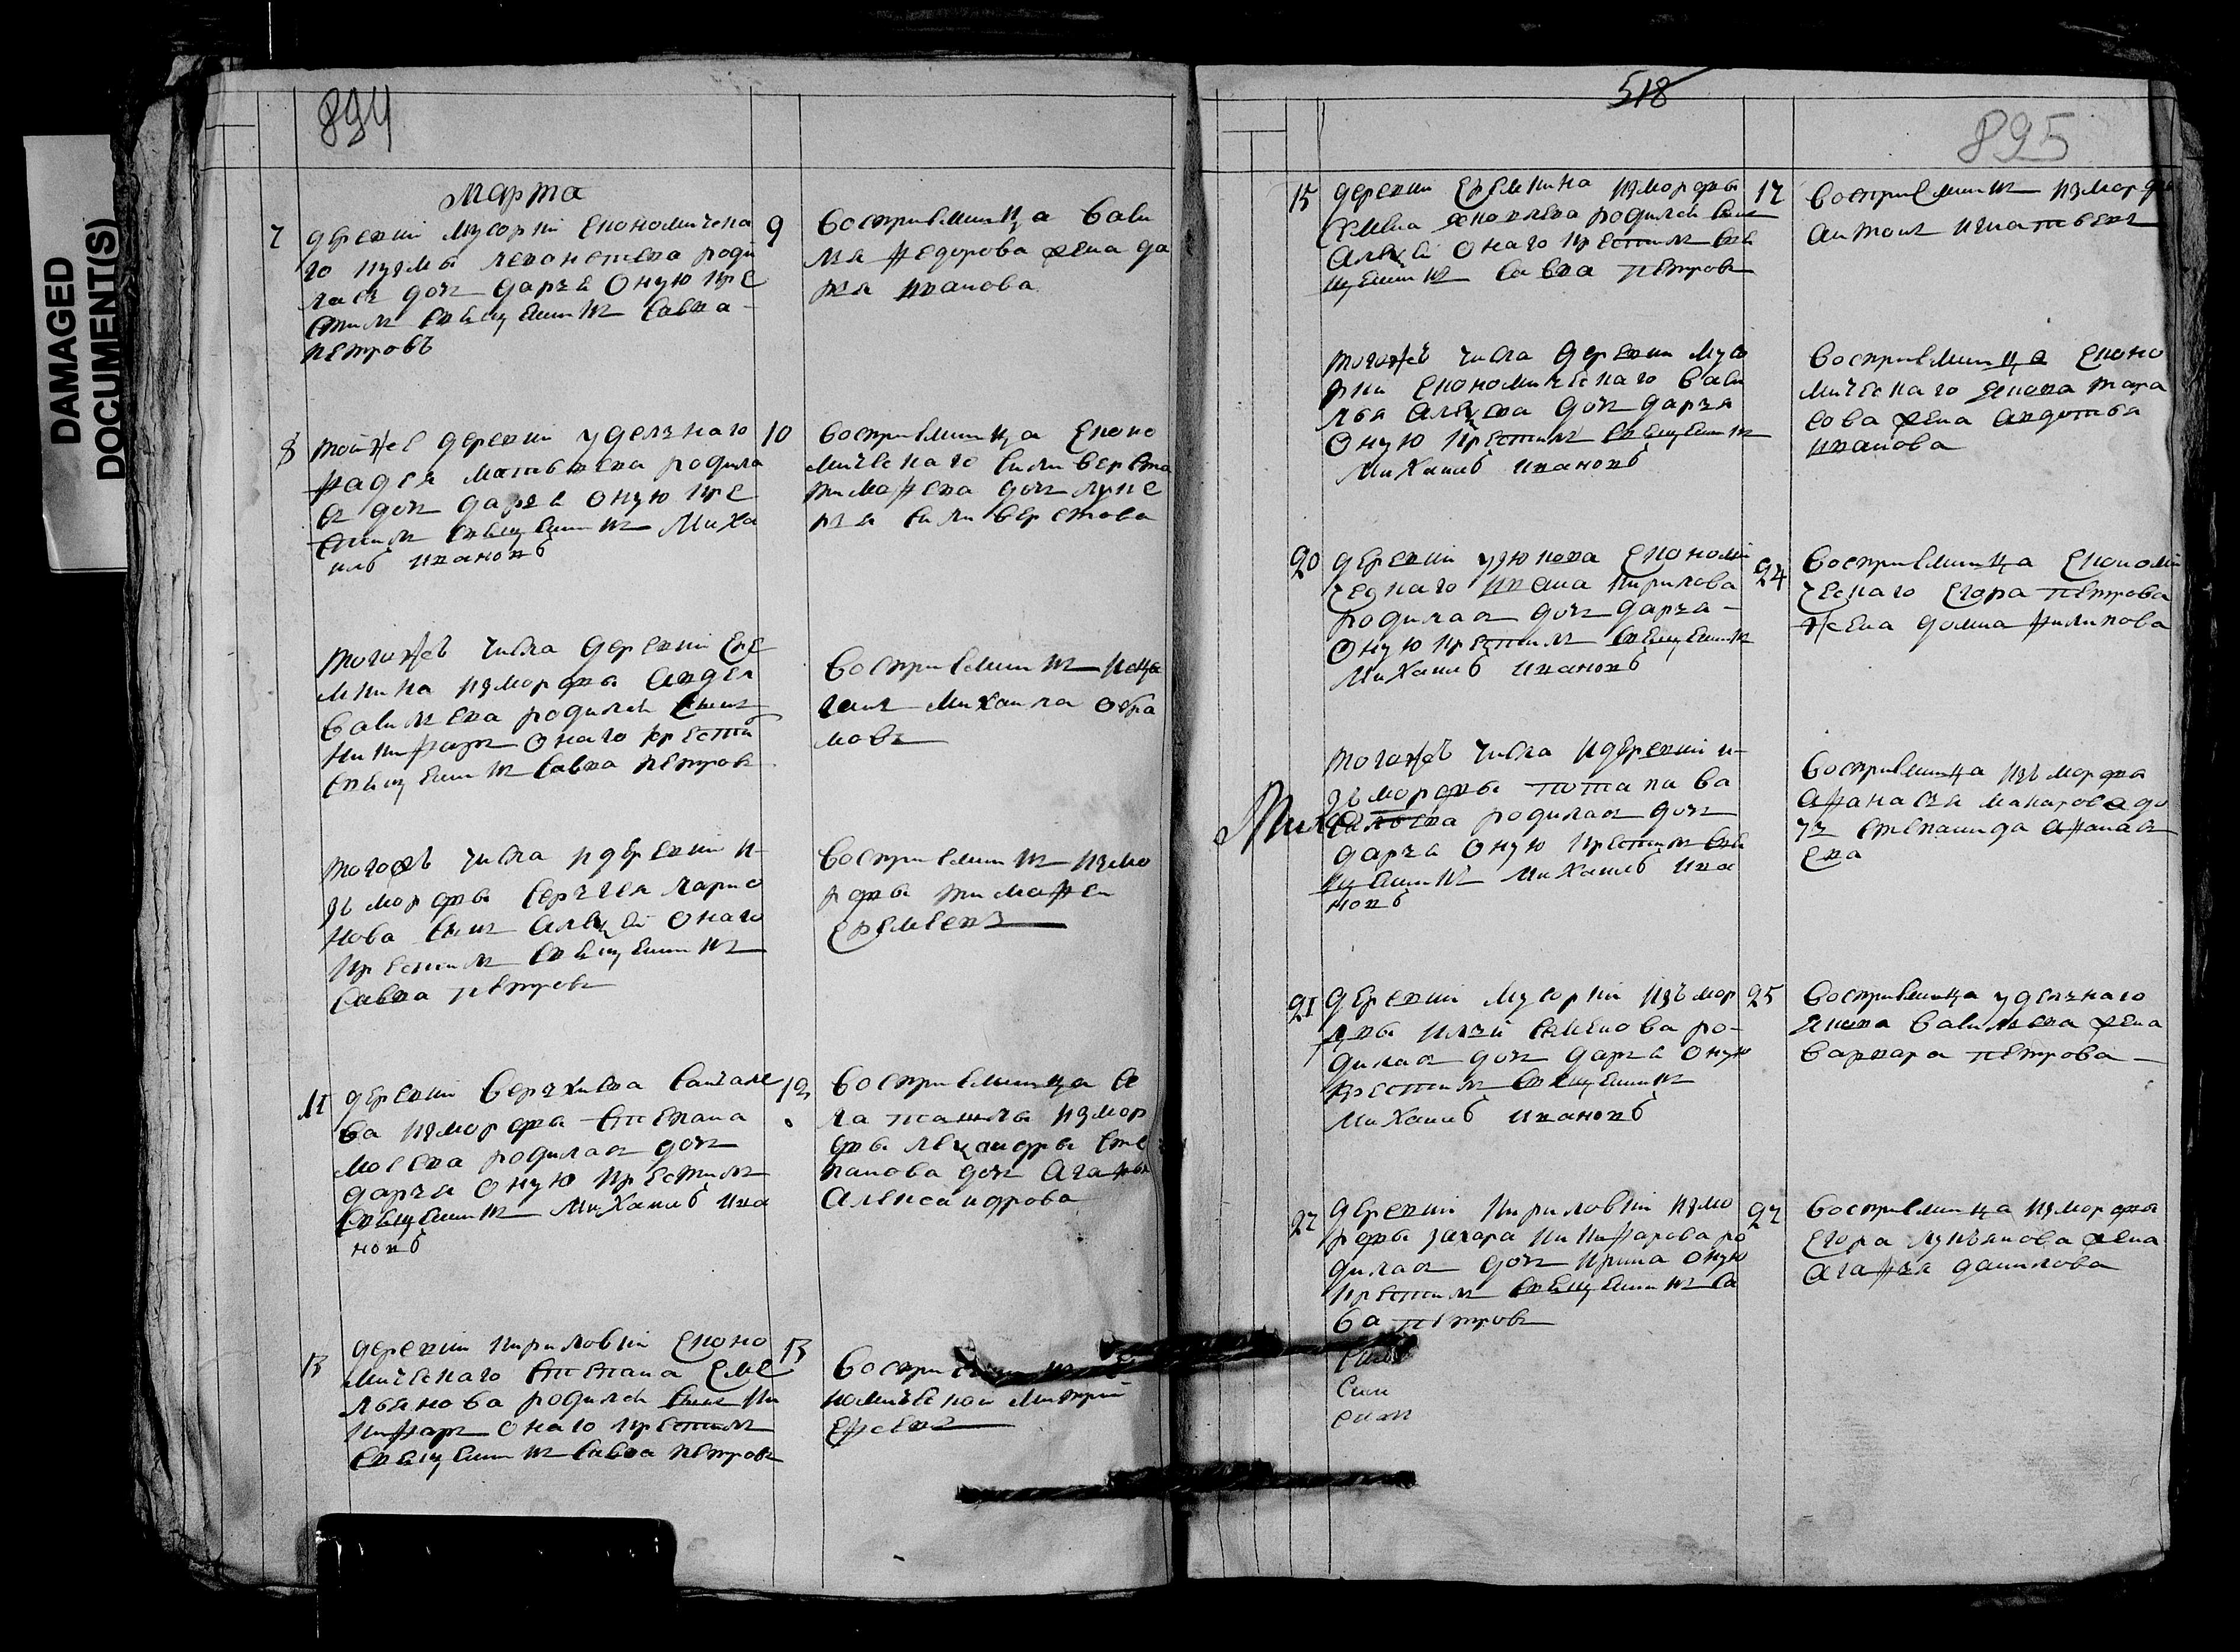 DAMAGED
DOCUMENT(S)
894
Марта
7 деревни Мусорки економическа
го кузмы леконтева роди
лась дочь дарья Оную кре
стилъ священникъ савва
петровъ
9 восприемница васи
лья федорова жена да
рья иванова
8 тойже деревни удельнаго
фадея матвеева родила
сь дочь дарья оную кре
стилъ священникъ Миха
илъ ивановъ
10 восприемница еконо
мическаго силиверста
тимофеева дочь луке
рья силиверстова
тогожъ числа деревни Ере
мкина измордвы авдея
васильева родился сынъ
никифоръ онаго крести
священникъ савва петровъ
восприемникъ
михаила абра
мовъ
тогожъ числа идеревни и
зъ мордвы сергея ларио
нова сынъ алексей онаго
крестилъ священникъ
савва петровъ
восприемникъ измо
рдвы тимофей
еремеевъ
11 деревни
ва измордвы степана
мосеева родилась дочь
дарья оную крестилъ
священникъ Михаилъ ива
новъ
12 восприемница се
ла ташлы измор
двы лександры сте
панова дочь агафья
александрова
13 деревни кириловки еконо
мическаго степана еме
льянова родился сынъ ни
кифоръ онаго крестилъ
священникъ савва петровъ
13 восприемникъ е
кономической митрий
518
895
15 деревни Еремкина измордвы
семена яковлева родился сынъ
алексей онаго крестилъ свя
щенникъ савва петровъ
17 восприемникъ измордвы
антонъ игнатьевъ
тогожъ числа деревни мусо
рки економическаго васи
лья алексеева дочь дарья
оную крестилъ священникъ
Михаилъ ивановъ
восприемница еконо
мическаго якова тара
сова жена авдотья
иванова
20 деревни узюкова економи
ческаго ивана кирилова
родилась дочь дарья
оную крестилъ священникъ
Михаилъ ивановъ
24 восприемница економи
ческаго егора петрова
жена домна филипова
тогожъ числа идеревни и
зъ мордвы потапа ва
сильева родилась дочь
дарья оную крестилъ свя
щенникъ Михаилъ ива
новъ
восприемница изъ мордвы
афанасья макарова до
чь степанида афанась
ева
21 деревни мусорки изъ мор
двы ильи семенова ро
дилась дочь дарья оную
крестилъ священникъ
Михаилъ ивановъ
25 восприемница удельнаго
якова васильева жена
варвара петрова
27 деревни кириловки измо
рдвы захара никифорова ро
дилась дочь ирина оную
крестилъ священникъ са
ва петровъ
27 восприемница измордвы
егора лукьянова жена
агафья данилова